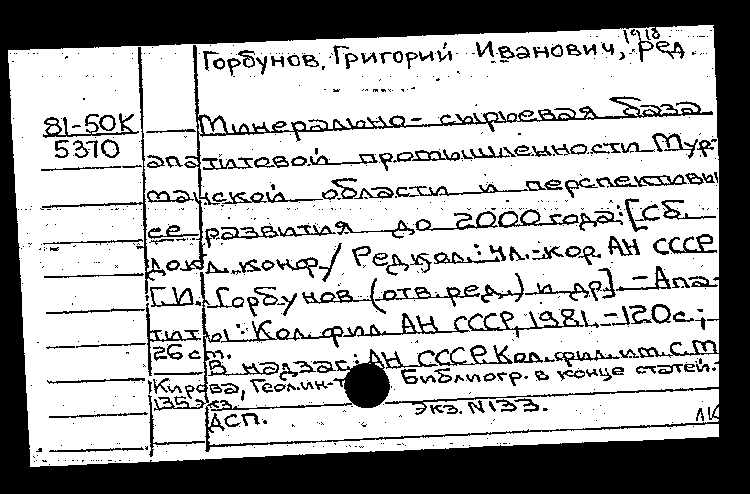 1918
Горбунов, Григорий Иванович, ред.
81-50К
5370
Минерально-сырьевая база
апатитовой промышленности Мур-
манской области и перспективы
ее развития до 2000 года: [Сб.
докл. конф./ Редкол.: чл.-кор. АН СССР
Г.И. Горбунов (отв. ред.) и др]. - Апа-
титы: Кол. фил. АН СССР, 1981. - 120с.;
26 см.
В надзаг.: АН СССР. Кол. фил. им. С.М
Кирова, Геол. ин-т Библиогр. в конце статей.
135 экз.
ДСП. экз. N133.